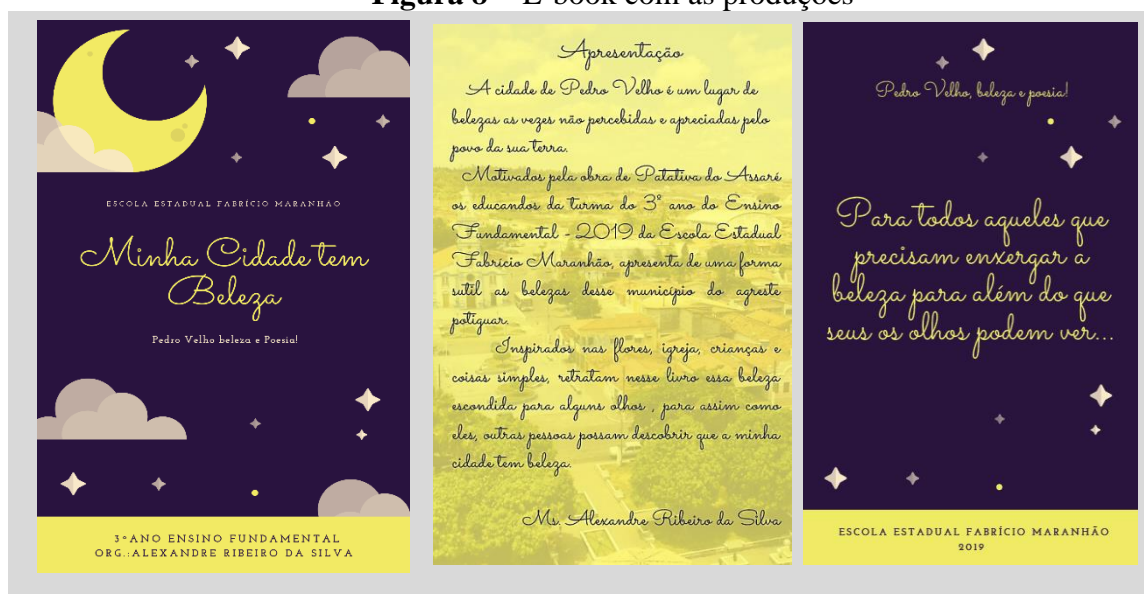 Figura 8 – E-book com as produções
ESCOLA ESTADUAL FABRÍCIO MARANHÃO
Minha Cidade tem
Beleza
Pedro Velho beleza e Poesia!
3ºANO ENSINO FUNDAMENTAL
ORG.:ALEXANDRE RIBEIRO DA SILVA
Apresentação
A cidade de Pedro Velho é um lugar de
belezas as vezes não percebidas e apreciadas pelo
povo da sua terra.
Motivados pela obra de Patativa do Assaré
os educandos da turma do 3º ano do Ensino
Fundamental - 2019 da Escola Estadual
Fabrício Maranhão, apresenta de uma forma
sutil as belezas desse município do agreste
potiguar.
Inspirados nas flores, igreja, crianças e
coisas simples, retratam nesse livro essa beleza
escondida para alguns olhos , para assim como
eles, outras pessoas possam descobrir que a minha
cidade tem beleza.
Ms. Alexandre Ribeiro da Silva
Pedro Velho, beleza e poesia!
Para todos aqueles que
precisam enxergar a
beleza para além do que
seus os olhos podem ver...
ESCOLA ESTADUAL FABRÍCIO MARANHÃO
2019